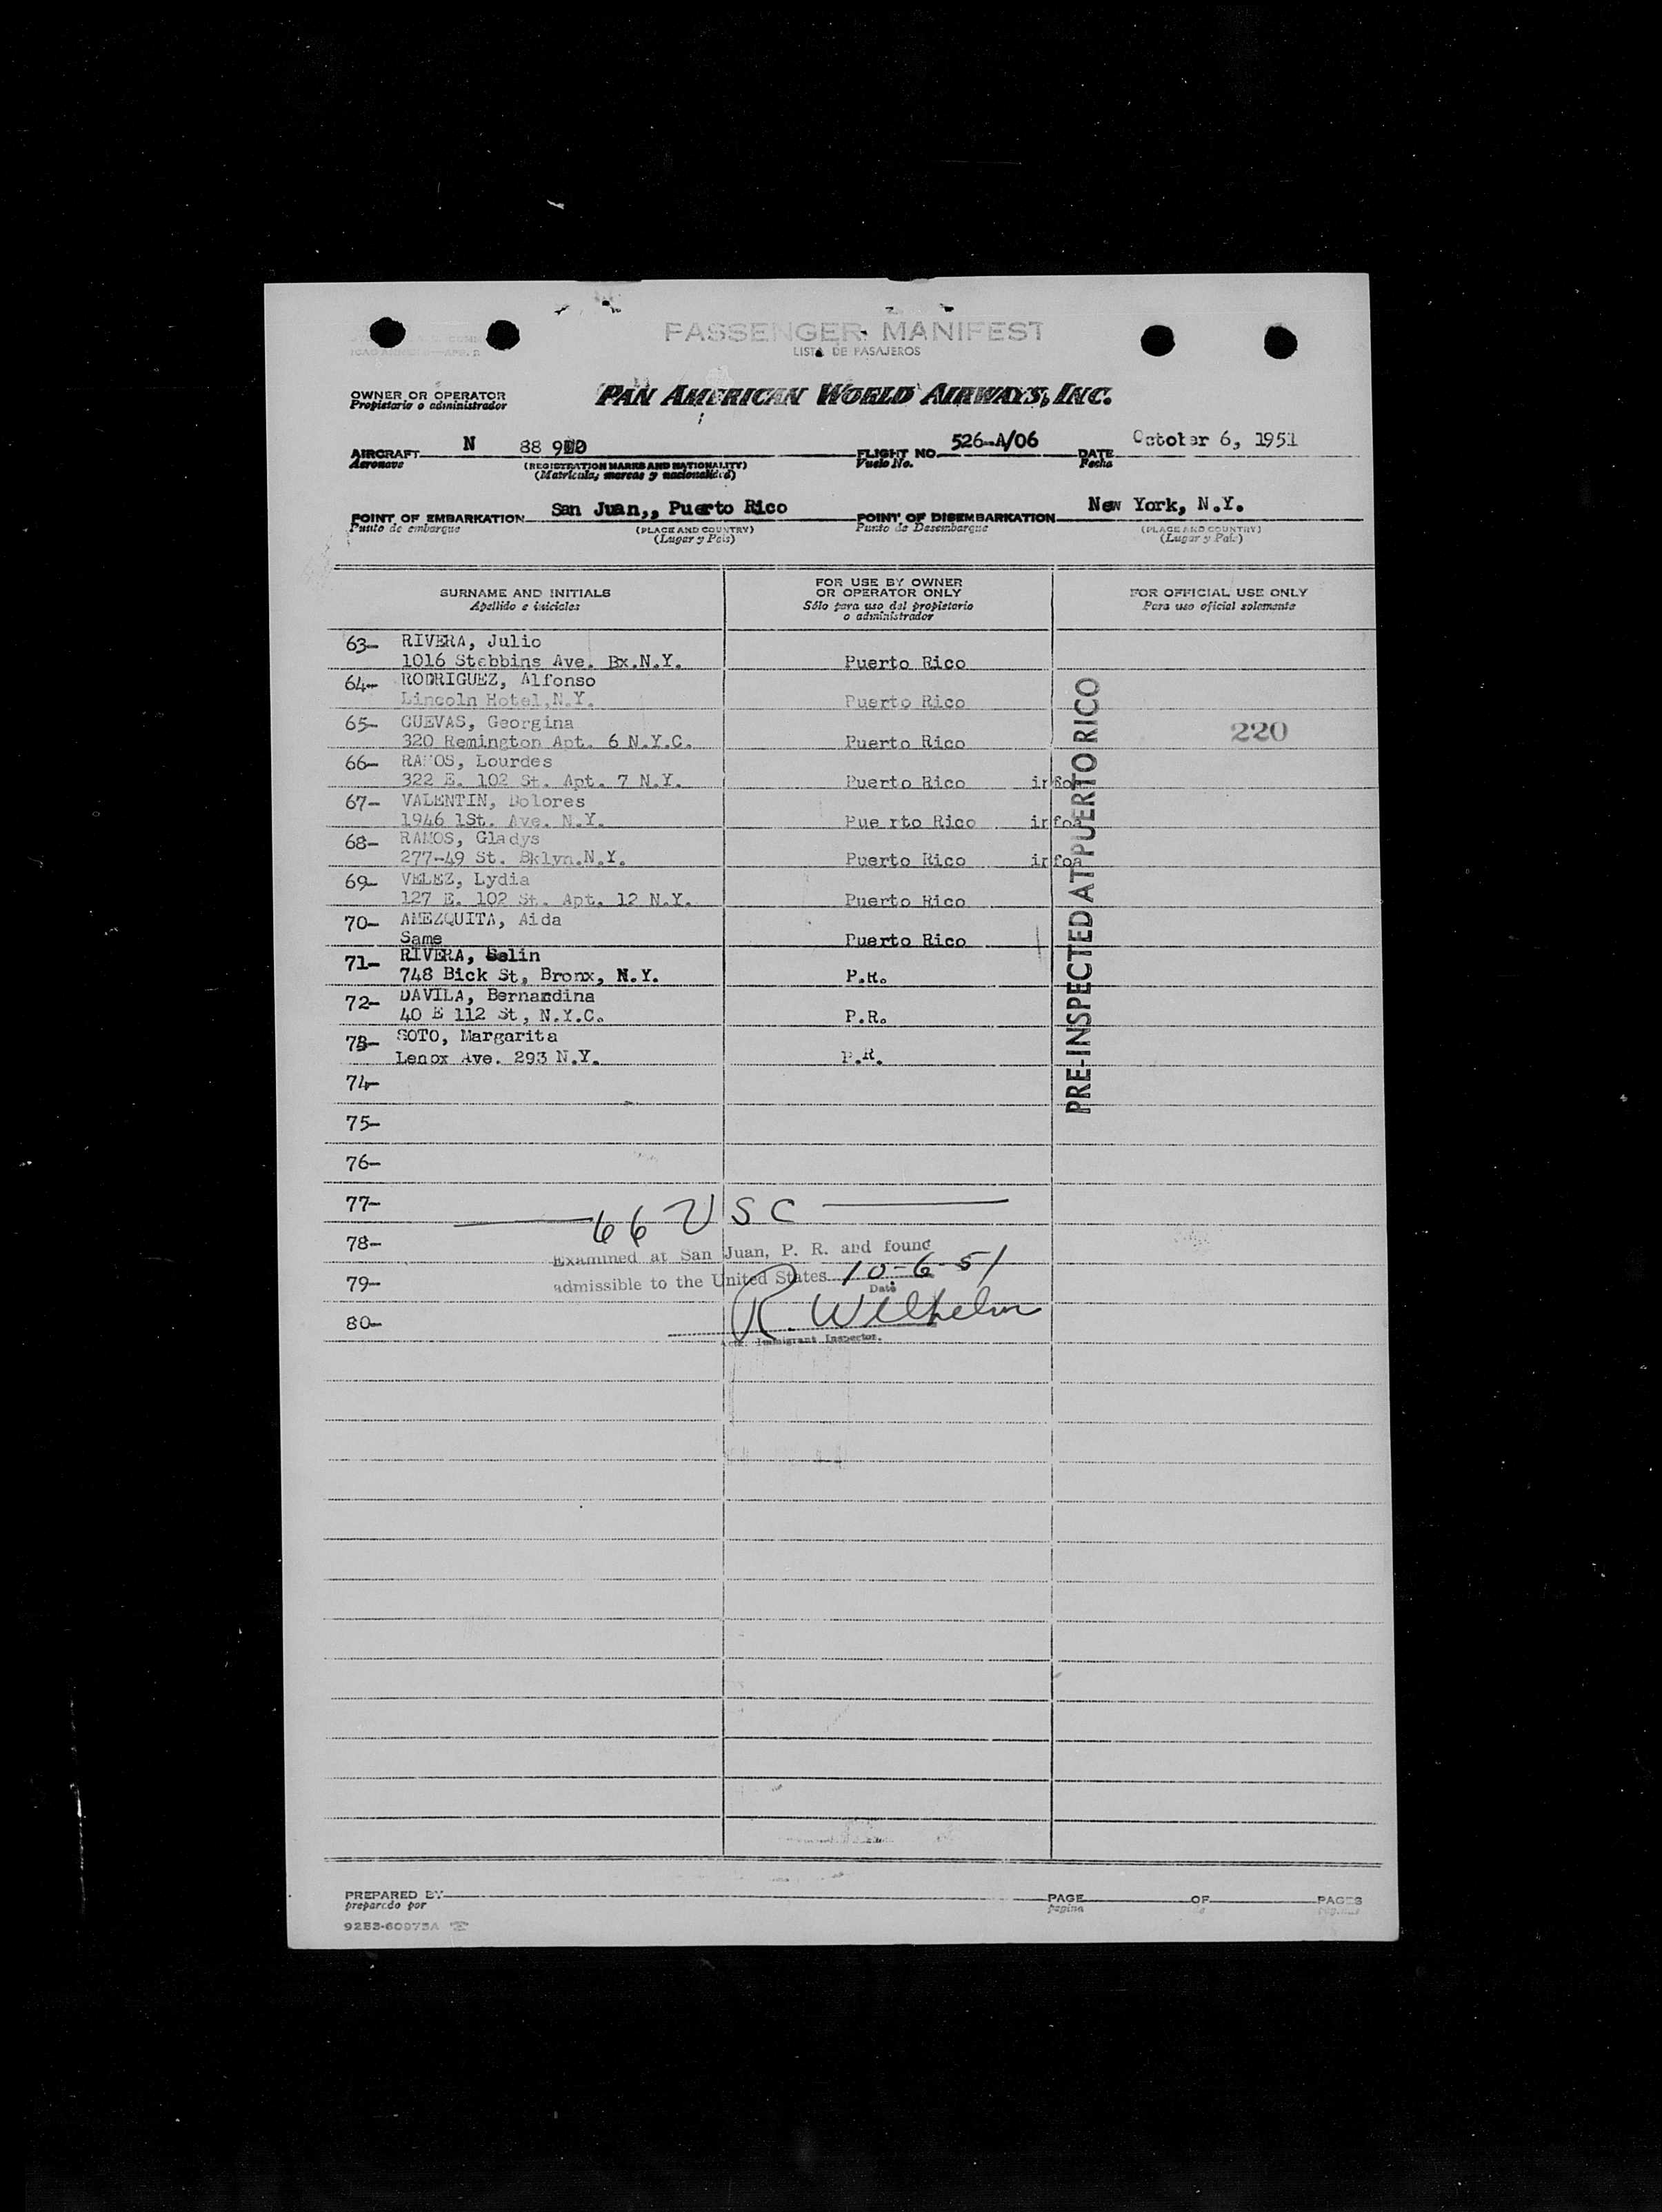 PASSENGER MANIFEST
LISTA DE PASAJEROS
OWNER OR OPERATOR
Propietario o administrador
PAN AMERICAN WORLD AIRWAYS, INC.
AIRCRAFT N 88 9 FLIGHT NO. 526-A/06 DATE October 6, 1951
Aeronave (REGISTRATION MARKS AND NATIONALITY) Vuelo No. Fecha
(Matrícula, marcas y nacionalidad)
POINT OF EMBARKATION San Juan,, Puerto Rico POINT OF DISEMBARKATION New York, N.Y.
Punto de embarque (PLACE AND COUNTRY) Punto de Desembarque (PLACE AND COUNTRY)
(Lugar y País) (Lugar y País)
SURNAME AND INITIALS
Apellido e iniciales
FOR USE BY OWNER
OR OPERATOR ONLY
Sólo para uso del propietario
o administrador
FOR OFFICIAL USE ONLY
Para uso oficial solamente
63- RIVERA, Julio
1016 Stebbins Ave. Bx.N.Y. Puerto Rico
64- RODRIGUEZ, Alfonso
Lincoln Hotel,N.Y. Puerto Rico
65- CUEVAS, Georgina
320 Remington Apt. 6 N.Y.C. Puerto Rico
220
66- RAMOS, Lourdes
322 E. 102 St. Apt. 7 N.Y. Puerto Rico infoa
67- VALENTIN, Dolores
1946 1St. Ave. N.Y. Pue rto Rico infoa
68- RAMOS, Gladys
277-49 St. Bklyn.N.Y. Puerto Rico infoa
69- VELEZ, Lydia
127 E. 102 St. Apt. 12 N.Y. Puerto Rico
70- AMEZQUITA, Aida
Same Puerto Rico
71- RIVERA, Selin
748 Bick St, Bronx, N.Y. P.R.
72- DAVILA, Bernandina
40 E 112 St, N.Y.C. P.R.
73- SOTO, Margarita
Lenox Ave. 293 N.Y. P.R.
PRE-INSPECTED AT PUERTO RICO
74-
75-
76-
77-
66 USC
78-
Examined at San Juan, P. R. and found
79- admissible to the United States 10-6-51
Date
80- R. Wilhelm
Immigrant Inspector.
PREPARED BY PAGE OF PAGES
preparado por pagina de paginas